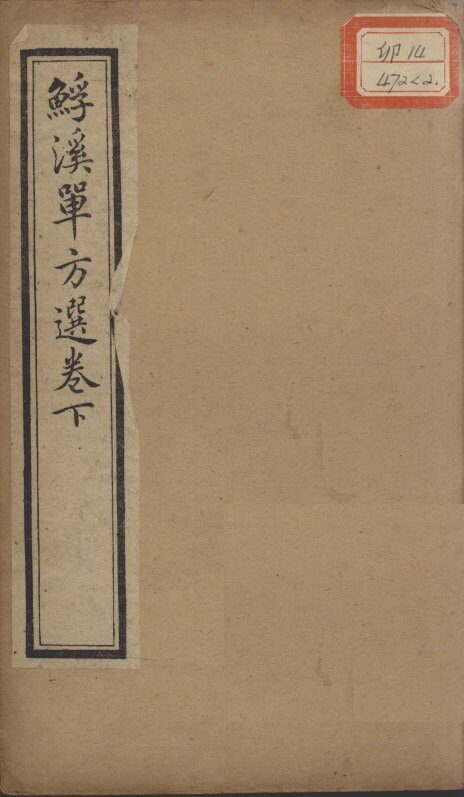 鯚溪單方選卷下
卬14
472<2.